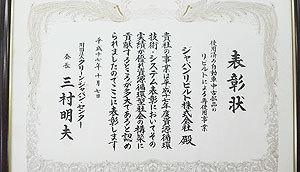 表彰状
使用済み自動車中古部品の
リビルトによる再使用事業
ジャパンリビルト株式会社 殿
貴社の事業は平成十七年度資源循環
技術・システム表彰においてその
実績が優良資源循環型社会の構築に
貢献すること大であると認め
られましたのでここに表彰します
平成十七年十月七日
財団法人クリーン・ジャパン・センター
会長 三村明夫